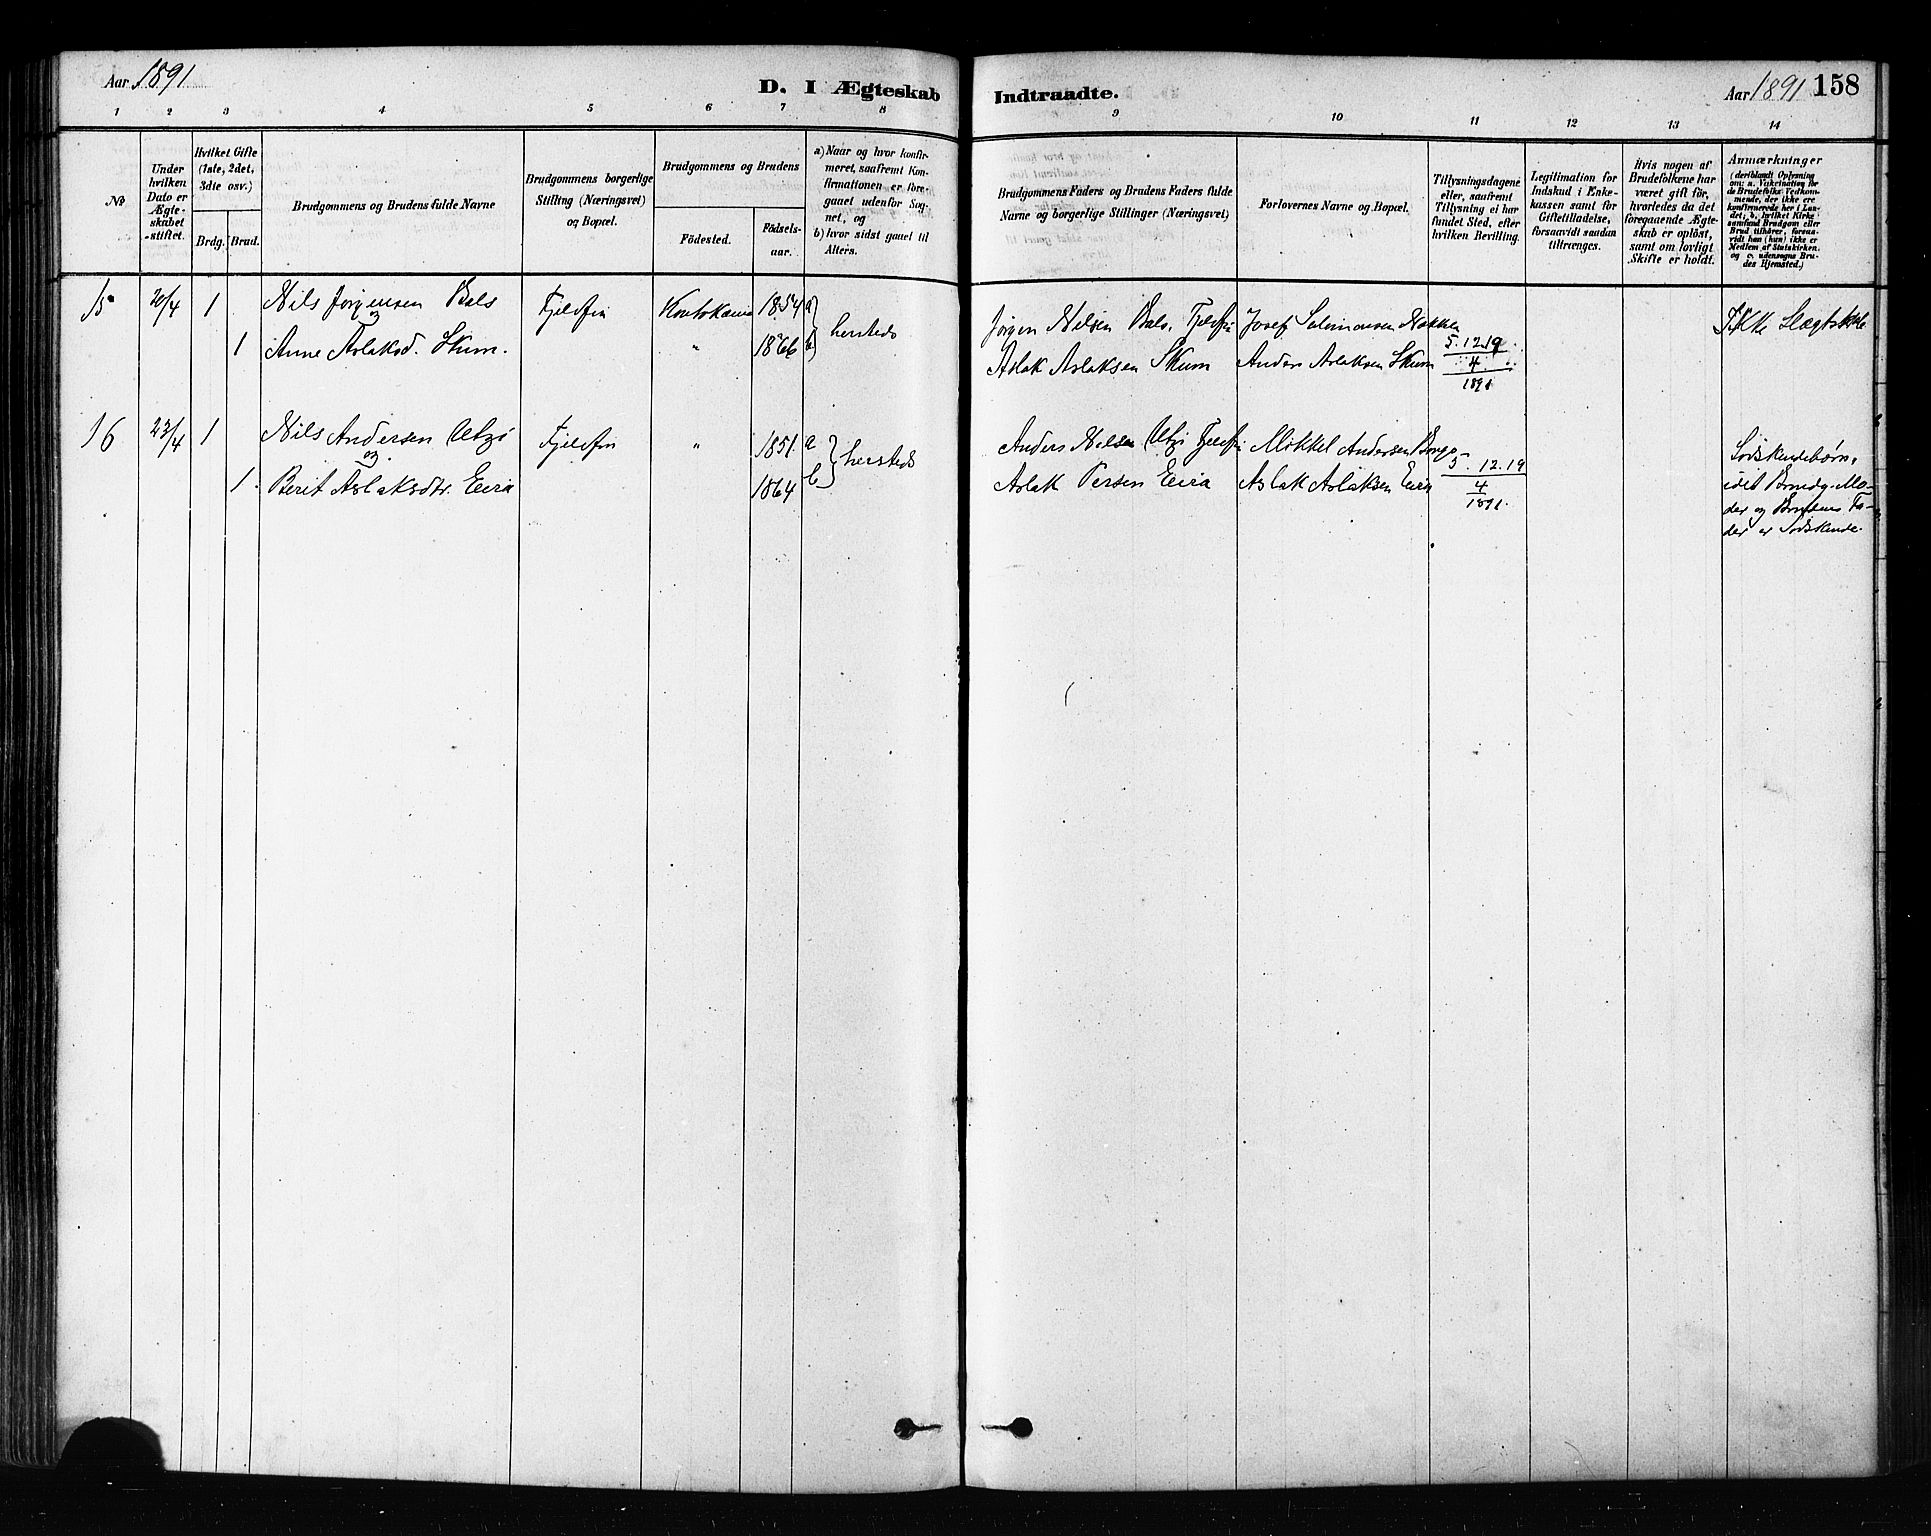 Aar 1891
D. I Ægteskab
Indtraadte.
Aar 1891 158
1 2 3 4 5 6 7 8 9 10 11 12 13 14
No
Under hvilken Dato er Ægte-skabet stiftet.
Hvilket Gifte (1ste, 2det, 3die osv.)
Brdg. Brud.
Brudgommens og Brudens fulde Navne
Brudgommens borgerlige Stilling (Næringsvei) og Bopæl.
Brudgommens og Brudens
Födested.
Födsels-aar.
a) Naar og hvor konfir-meret, saafremt Kon-firmationen er fore-gaaet udenfor Sog-net, og
b) hvor sidst gaaet til Alters.
Brudgommens Faders og Brudens Faders fulde
Navne og borgerlige Stillinger (Næringsvei)
Forlovernes Navne og Bopæl.
Tillysningsdagene eller, saafremt Tillysning ei har fundet Sted, efter hvilken Bevilling.
Legitimation for Indskud i Enke-kassen samt for Giftetilladelse, forsaavidt saadan tiltrænges.
Hvis nogen af Brudefolkene har været gift för, hvorledes da det foregaaende Ægte-skab er oplöst, samt om lovligt Skifte er holdt.
Anmærkninger (deriblandt Oplysning om: a. Vakcination for de Brudefolks Vedkom-mende, der ikke ere konfirmerede her i Lan-det, b. hvilket Kirke-samfund Brudgom eller Brud tilhörer, forsaa-vidt han (hun) ikke er Medlem af Statskirken, og c. udensogns Bru-des Hjemsted.)
15 20/4 1 Nils Jørgensen Bals Fjeldfin Koutokeino 1854 a) Jørgen Nilsen Bals, Fjeldfin Josef Salomonsen Nakken Ikke Slægtskab
og hersteds 5. 12. 19
1 Anne Aslaksd. Skum. " 1866 b) Aslak Aslaksen Skum Anders Aslaksen Skum 4
1891
16 23/4 1 Nils Andersen Utzi Fjeldfin " 1851. a Anders Nilsen Utzi Fjeldfin Mikkel Andersen Bongo Södskendebørn,
og hersteds 5. 12. 19
1. Berit Aslaksdtr. Eira 1864 b Aslak Persen Eira Aslak Aslaksen Eira 4 idet Brudg. Mo-
1891. der og Brudens Fa-
der er Södskende.